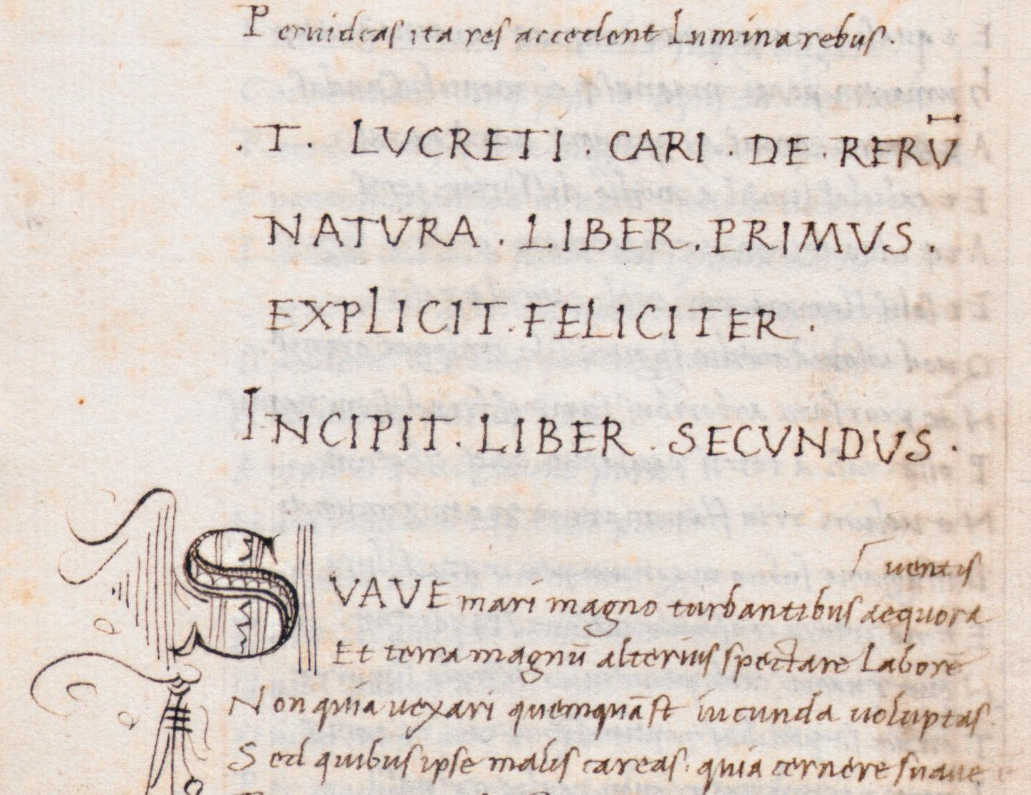 Peruideas ita res accedent Lumina rebus.
.T. LVCRETI. CARI. DE. RERV̄
NATVRA. LIBER. PRIMVS.
EXPLICIT. FELICITER.
INCIPIT. LIBER SECVNDVS.
uentis
SVAVE mari magno turbantibus aequora
Et terra magnū alterius spectare Laborē
Non quia uexari quemquāst iucunda uoluptas.
Sed quibus ipse malis careas quia cernere suaue